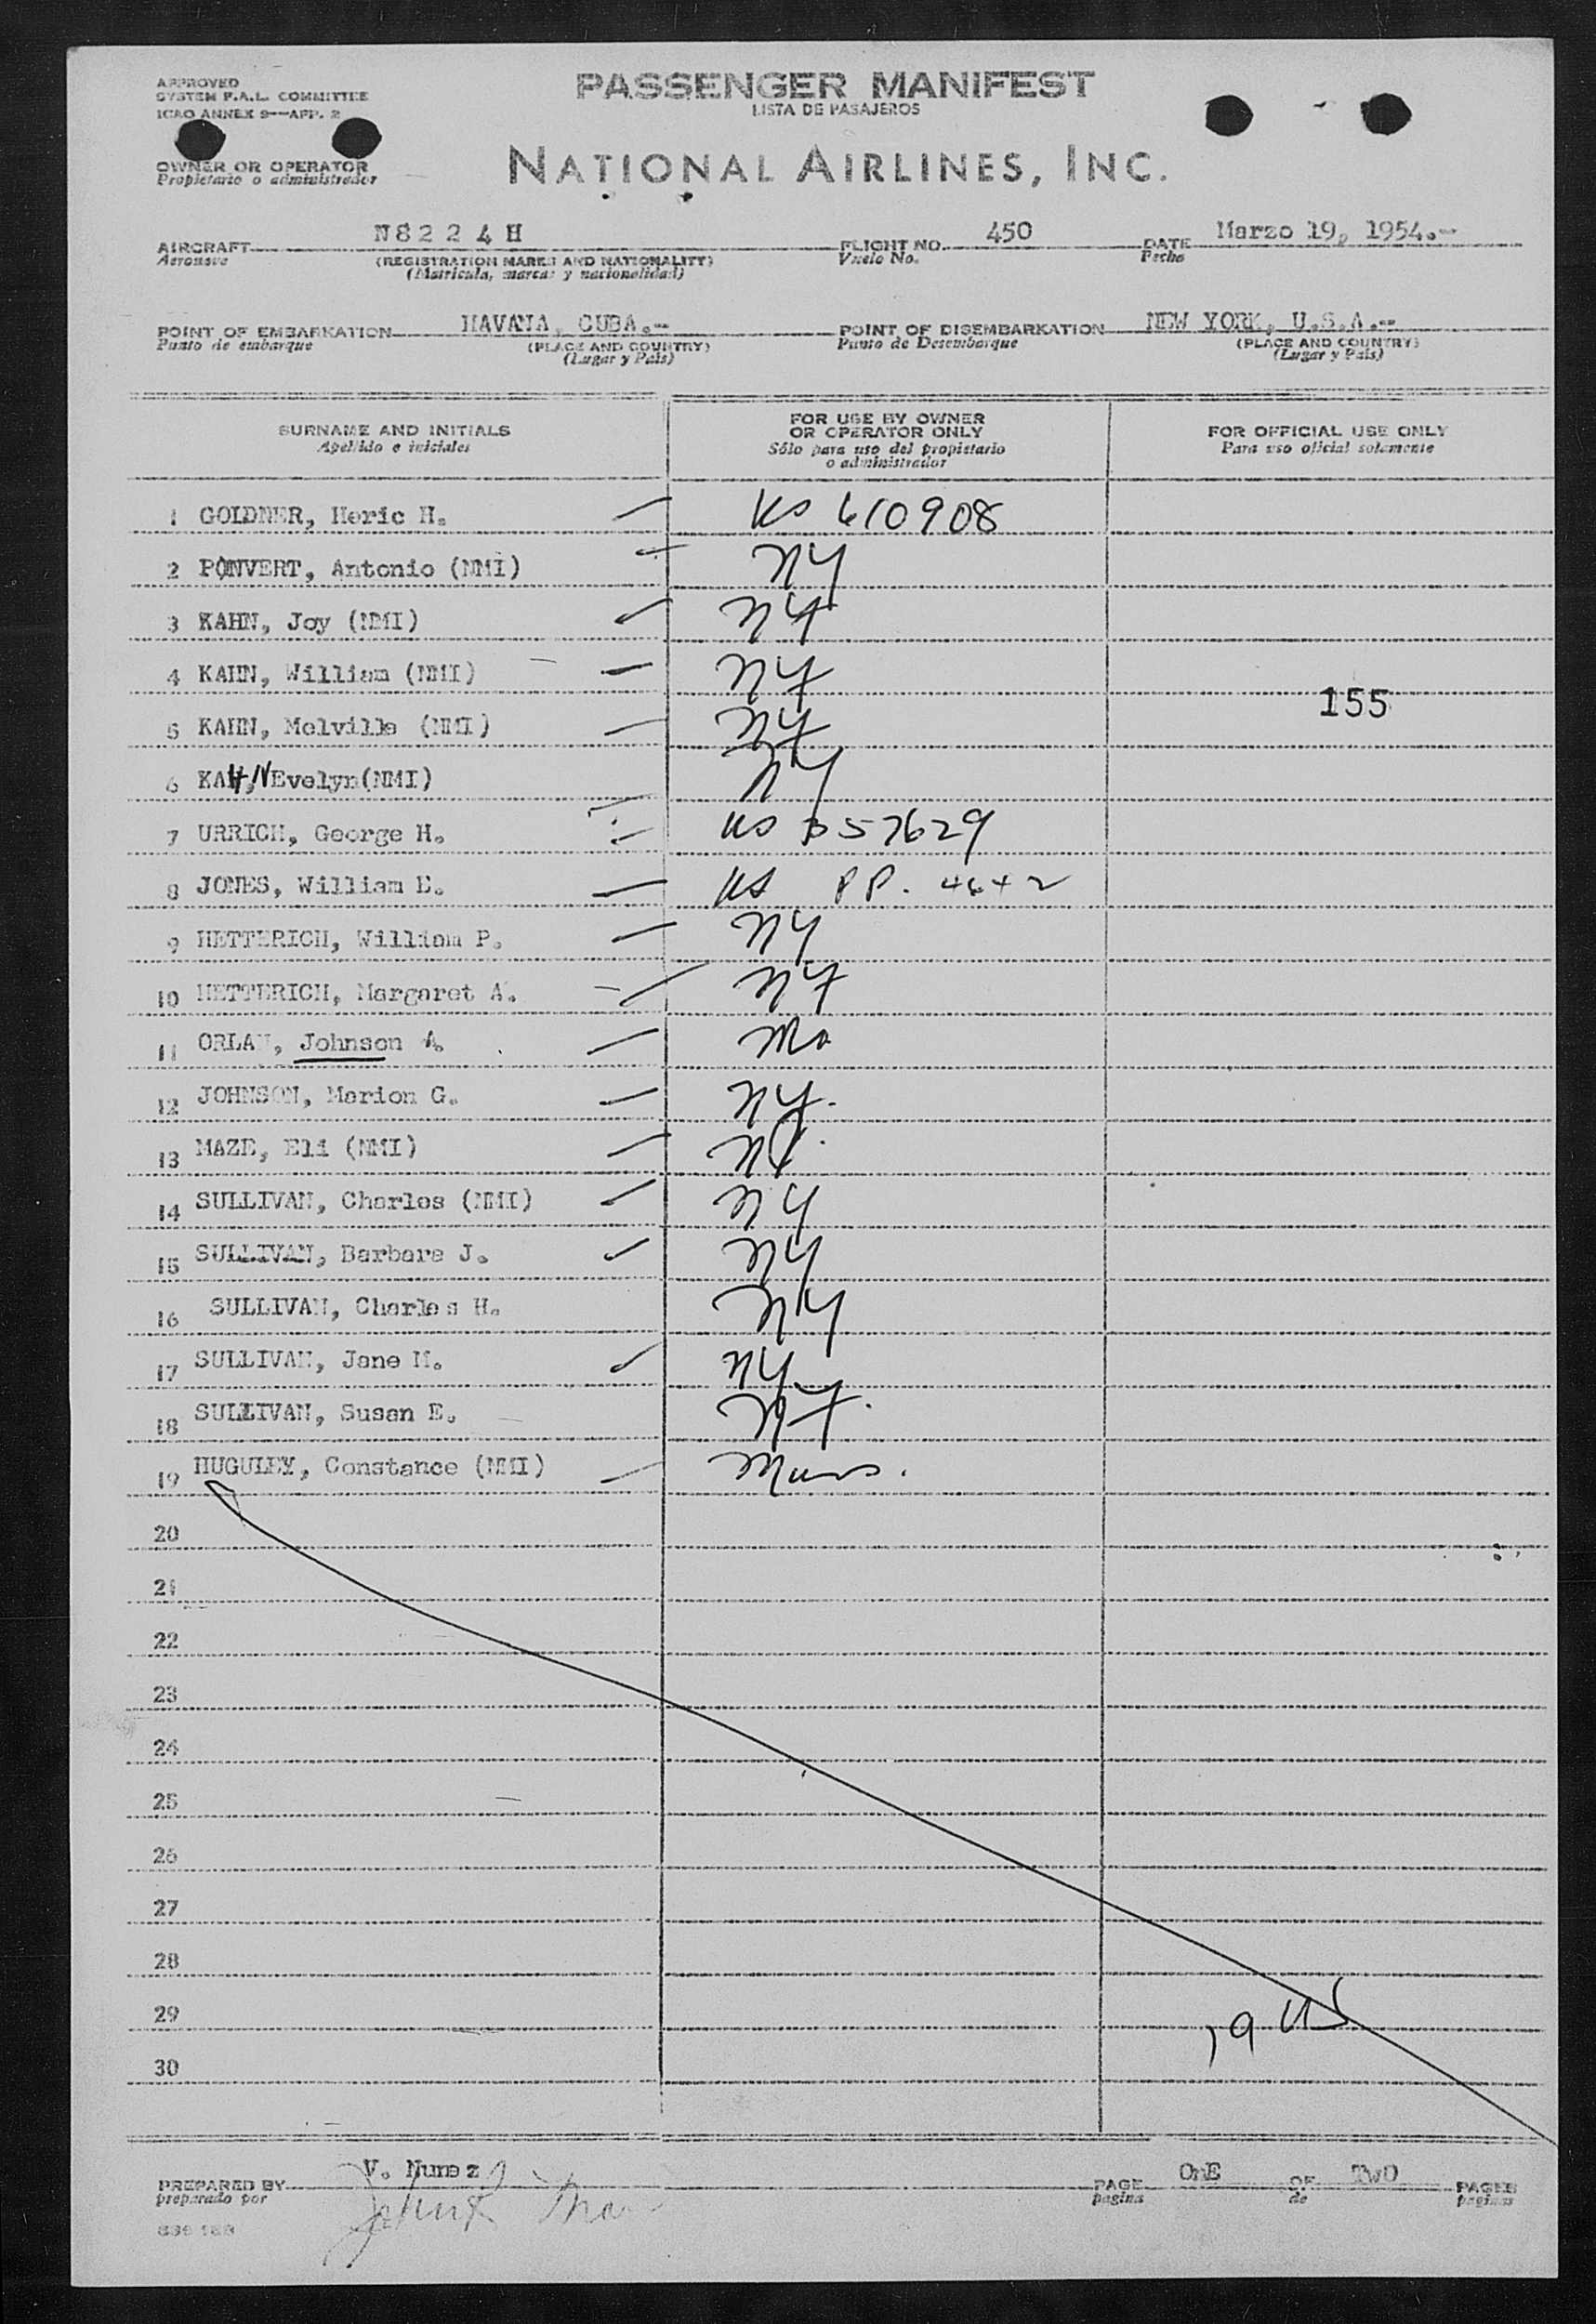 APPROVED
SYSTEM F.A.L. COMMITTEE
ICAO ANNEX 9—APP. 2
PASSENGER MANIFEST
LISTA DE PASAJEROS
OWNER OR OPERATOR
Propietario o administrador
NATIONAL AIRLINES, INC.
AIRCRAFT N8224H FLIGHT NO. 450 DATE Marzo 19, 1954.-
Aeronave (REGISTRATION MARKS AND NATIONALITY) Vuelo No. Fecha
(Matricula, marcas y nacionalidad)
POINT OF EMBARKATION HAVANA, CUBA.- POINT OF DISEMBARKATION NEW YORK, U.S.A.--
Punto de embarque (PLACE AND COUNTRY) Punto de Desembarque (PLACE AND COUNTRY)
(Lugar y País) (Lugar y País)
SURNAME AND INITIALS
Apellido e iniciales
FOR USE BY OWNER
OR OPERATOR ONLY
Sólo para uso del propietario
o administrador
FOR OFFICIAL USE ONLY
Para uso oficial solamente
1 GOLDNER, Heric H. US 610908
2 PONVERT, Antonio (NMI) NY
3 KAHN, Joy (NMI) NY
4 KAHN, William (NMI) NY
155
5 KAHN, Melville (NMI) NY
6 KAHN, Evelyn(NMI) NY
7 URRICH, George H. US 57629
8 JONES, William E. US PP.
9 HETTERICH, William P. NY
10 HETTERICH, Margaret A. NY
11 ORLAN, Johnson A. Mo
12 JOHNSON, Marion G. NY.
13 MAZE, Eli (NMI) NY.
14 SULLIVAN, Charles (NMI) NY
15 SULLIVAN, Barbara J. NY
16 SULLIVAN, Charles H. NY
17 SULLIVAN, Jane M. NY
18 SULLIVAN, Susan E. NY.
19 HUGULEY, Constance (NMI) Mass.
20
21
22
23
24
25
26
27
28
29
19 US
30
PREPARED BY V. Nunez PAGE OnE OF TwO PAGES
preparado por pagina de paginas